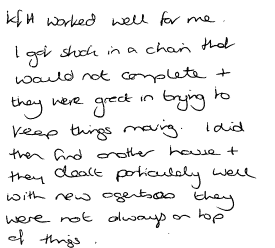 KFH worked well for me.
I got stuck in a chain that
would not complete +
they were great in trying to
keep things moving. I did
then find another house +
they dealt particularly well
with new agents as they
were not always on top
of things.